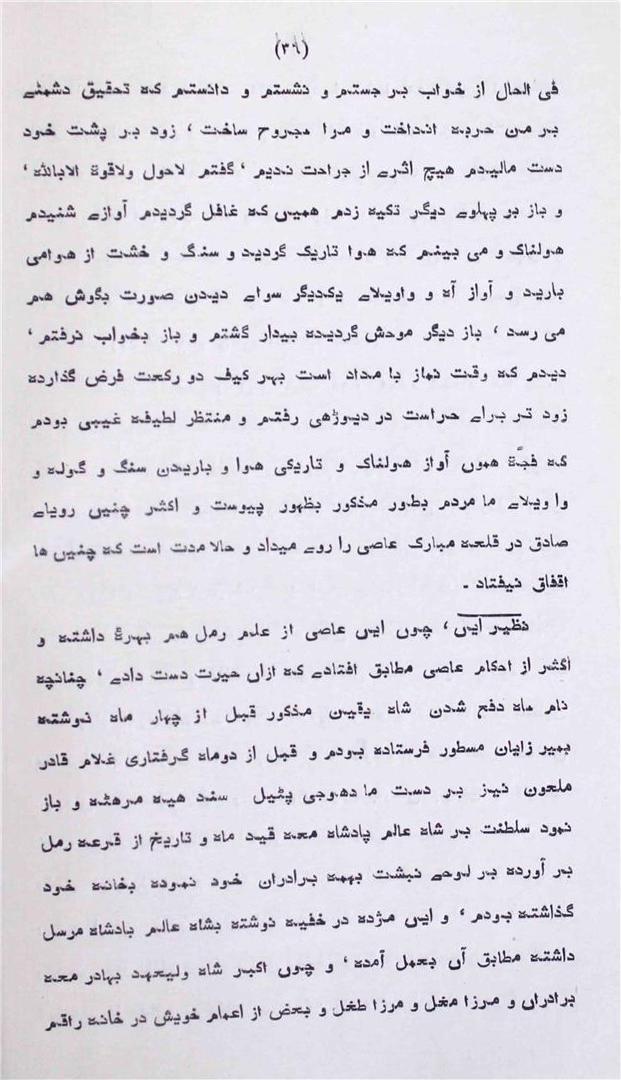 (۳۹)
فی الحال از خواب بر جستم و نشستم و دانستم که تحقیق دشمنے
بر من حربه انداخت و مرا مجروح ساخت ، زود بر پشت خود
دست مالیدم هیچ اثرے از جراحت ندیم ، گفتم لاحول ولاقوة الابالله ،
و باز بر پهلوے دیگر تکیه زدم همیں که غافل گردیدم آوازے شنیدم
هولناک و می بینم که هوا تاریک گردید و سنگ و خشت از هوامی
بارید و آواز آه و واویلاے یکدیگر سواے دیدن صورت بگوش هم
می رسد ، باز دیگر موحش گردیده بیدار گشتم و باز بخواب نرفتم ،
دیدم که وقت نماز با مداد است بهر کیف دو رکعت فرض گذارده
زود تر براے حراست در دیوڑهی رفتم و منتظر لطیفه غیبی بودم
که فجةً همون آواز هولناک و تاریکی هوا و باریدن سنگ و گوله و
وا ویلاے ما مردم بطور مذکور بظهور پیوست و اکثر چنیں رویاے
صادق در قلعه مبارک عاصی را روے میداد و حالا مدت است که چنیں ها
اقفاق نیفتاد ـ
نظیر ایں ، چوں ایں عاصی از علم رمل هم بهرۀ داشته و
اکثر از احکام عاصی مطابق افتادے که ازاں حیرت دست دادے ، چنانچه
نام ماه دفع شدن شاه یقین مذکور قبل از چهار ماه نوشته
بمیر زایان مسطور فرستاده بودم و قبل از دوماه گرفتاری غلام قادر
ملعون نیز بر دست ما دهوجی پٹیل سند هیه مرهٹه و باز
نمود سلطنت بر شاه عالم پادشاه معه قید ماه و تاریخ از قرعه رمل
بر آورده بر لوحے نبشت بهمه برادران خود نموده بخانه خود
گذاشته بودم ، و ایں مژده در خفیه نوشته بشاه عالم بادشاه مرسل
داشته مطابق آں بعمل آمده ، و چوں اکبر شاه ولیعهد بهادر معه
برادراں و مرزا مغل و مرزا طغل و بعض از اعمام خویش در خانه راقم